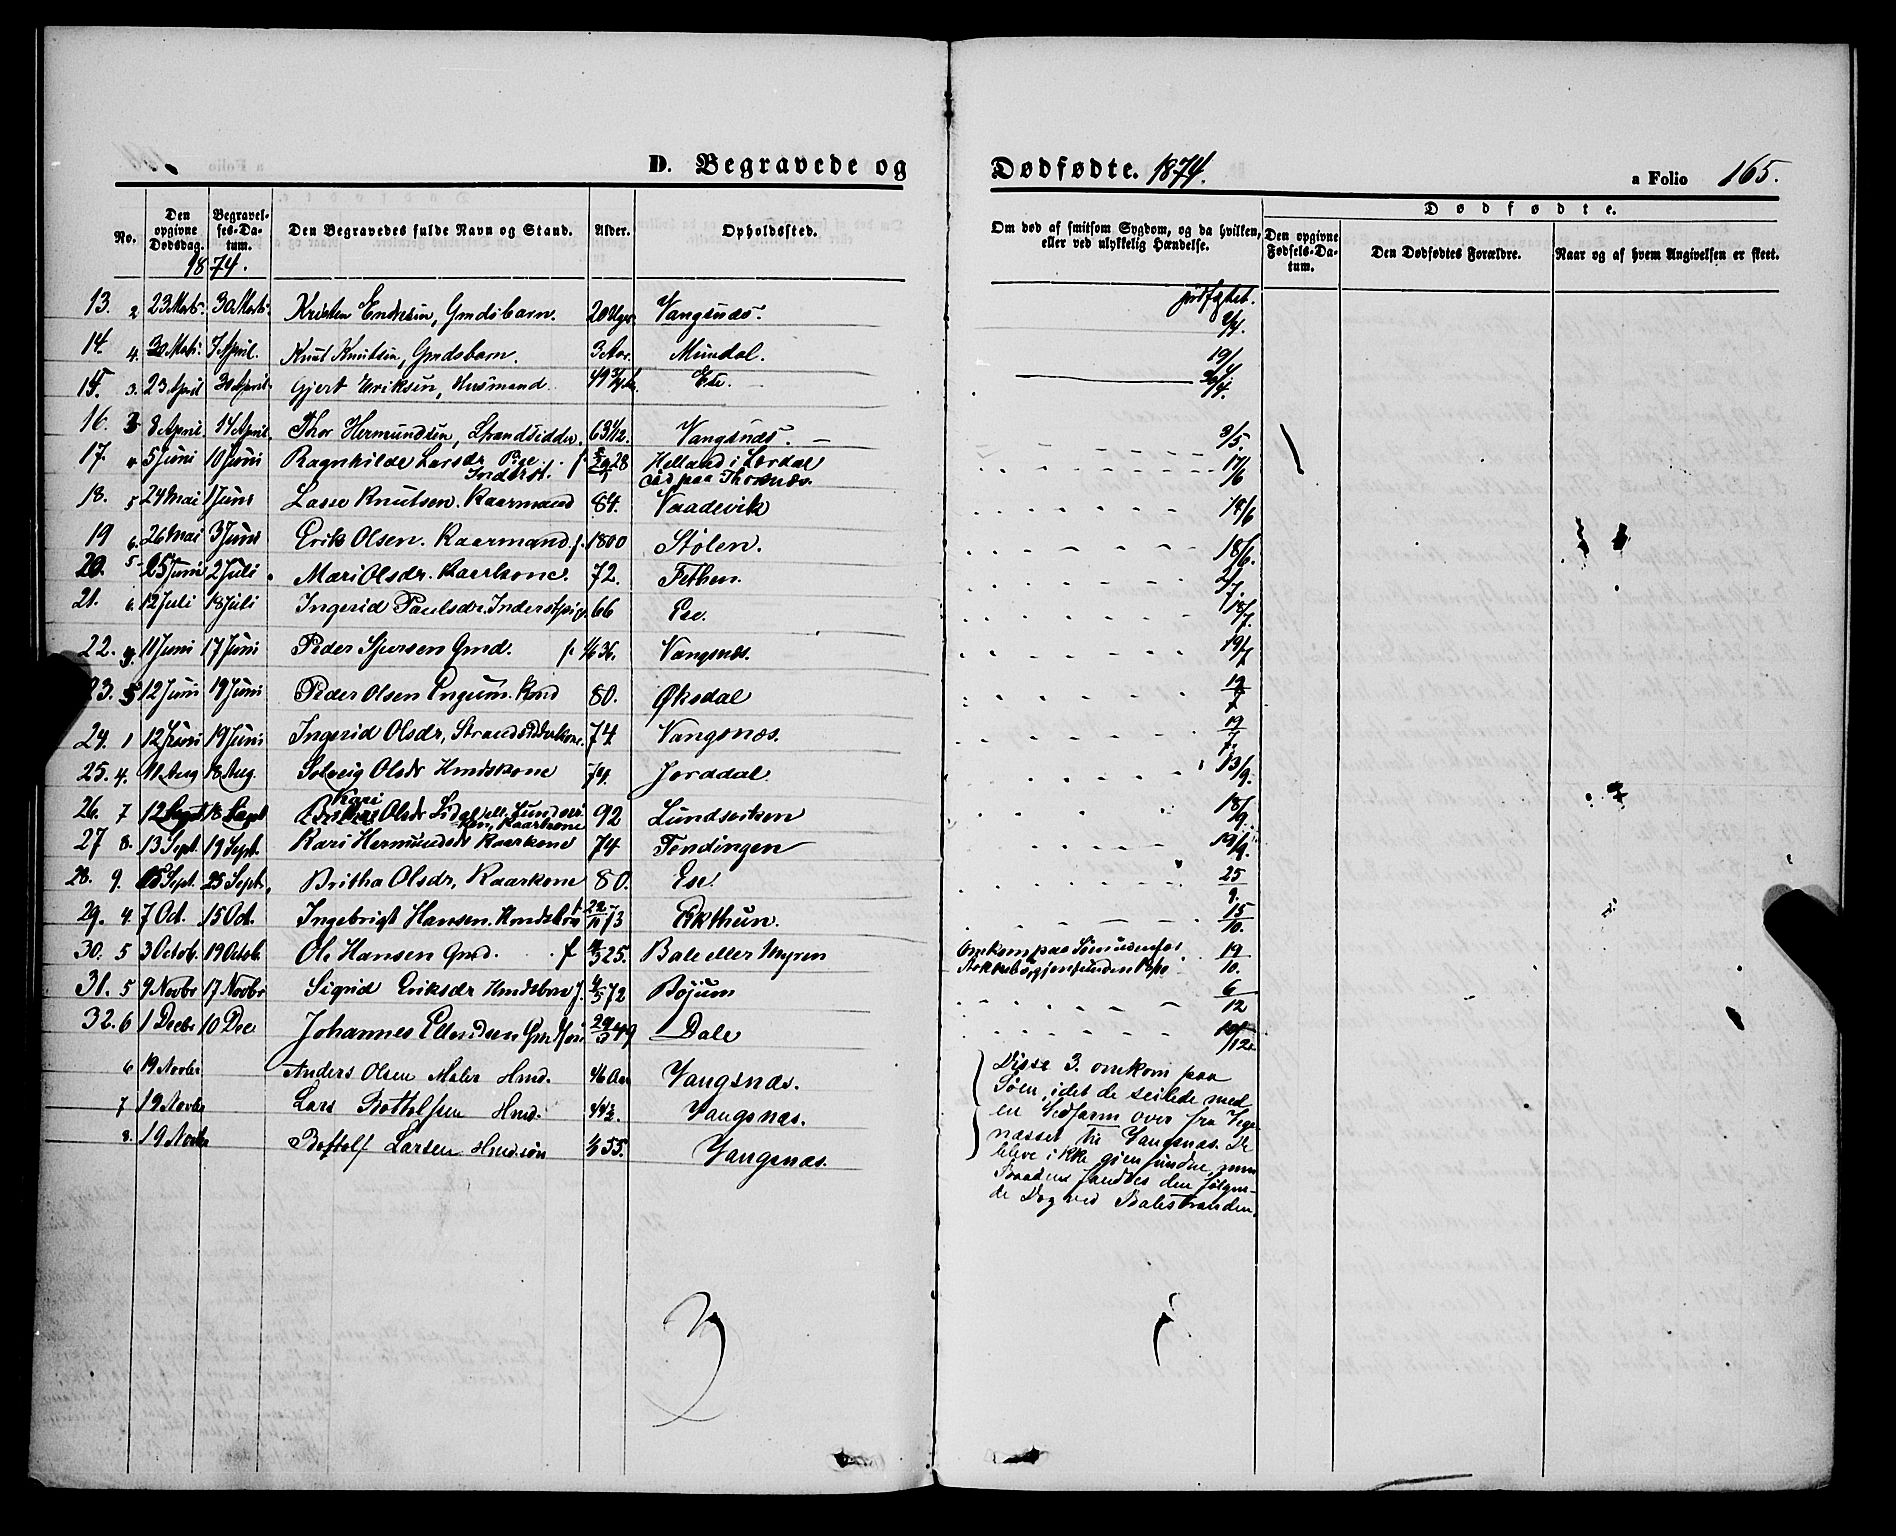 D. Begravede og Dødfødte. 1874. a Folio 165.
No.
Den opgivne Dødsdag.
Begravelses-Datum.
Den Begravedes fulde Navn og Stand.
Alder.
Opholdssted.
Om død af smitsom Sygdom, og da hvilken, eller ved ulykkelig Hændelse.
Dødfødte.
Den opgivne Fødsels-Datum.
Den Dødfødtes Forældre.
Naar og af hvem Angivelsen er skeet.
1874.
13. 2 23 Marts. 30 Marts. Kristen Endresen, Gmdsbarn. 20 Uger. Vangsnæs.
14. 4. 30 Marts. 7 April. Knut Knutsen, Gmdsbarn. 3 Aar. Mundal. 19/4
15. 3. 23 April 30 April Gjert Eriksen, Husmand 49 Ese. 26/4.
16. 3 8 April. 14 April. Thor Hermundsen, Strandsidder. 63 1/12. Vangsnæs. 3/5.
17. 5 Juni 10 Juni Ragnhilde Larsdr Pige Inderst. f. 28 Helland i Lærdal død paa Thorsnæs. 17/6
18. 5 24 Mai 1 Juni Lasse Knutsen. Kaarmand 84. Vaadevik 14/6
19 6. 26 Mai 3 Juni Erik Olsen. Kaarmand f. 1800 Stølen. 18/6.
20. 5 25 Juni 2 Juli Mari Olsdr. Kaarkone. 72. Fethen. 2/7.
21. 6. 12 Juli 18 Juli Ingerid Paulsdr. Inderst pige. 66 Ese. 18/7.
22. 11 Juni 17 Juni Peder Sjursen Gmd. f. 36. Vangsnæs. 19/7
23. 5 12 Juni 19 Juni Peder Olsen Engum. Kmd 80. Øksdal 19/7
24. 1 12 Juni 19 Juni Ingerid Olsdr, Strandsidderkone. 74 Vangsnæs. 19/7
25. 4. 11 Aug 18 Aug. Solveig Olsdr Hmdskone 74. Jorddal 13/9.
26. 7 12 Sept 18 Sept Kari Olsdr 92 Lundseiken 18/9.
27 8. 13 Sept. 19 Sept. Kari Hermundsdr Kaarkone 74 Tendingen 19/9.
28. 9. Sept. 25 Sept. Britha Olsdr, Kaarkone 80. Ese. 25/9.
29. 4. 7 Oct. 15 Oct. Ingebrigt Hansen. Hmdsbarn 22/11 73 Fikthun. 15/10.
30. 5 3 Octob. 19 Octob. Ole Hansen Gmd. f 25. Bale eller Myren Omkom paa Søen 19/10.
31. 5 9 Novbr 17 Novbr Sigrid Eriksdr Hmdsbarn f. 72 Bøjum 6/12
32. 6 1 Decbr 10 Dec Johannes Ellendsen 29/3 49 Dale /12.
6 19 Novbr Anders Olsen Maler Hmd. 46 Aar Vangsnæs.
7 19 Novbr Lars Bottolfsen Hmd. 44 1/2. Vangsnæs.
8. 19 Novbr Bottolf Larsen Hmdsøn 55. Vangsnæs.
Disse 3 omkom paa
Søen, idet de seilede med
en Vedfarm over fra Vige-
næsset til Vangsnæs. De
bleve ikke gjenfundne, men
Baaden fandtes den følgen-
de Dag ved Balestranden.